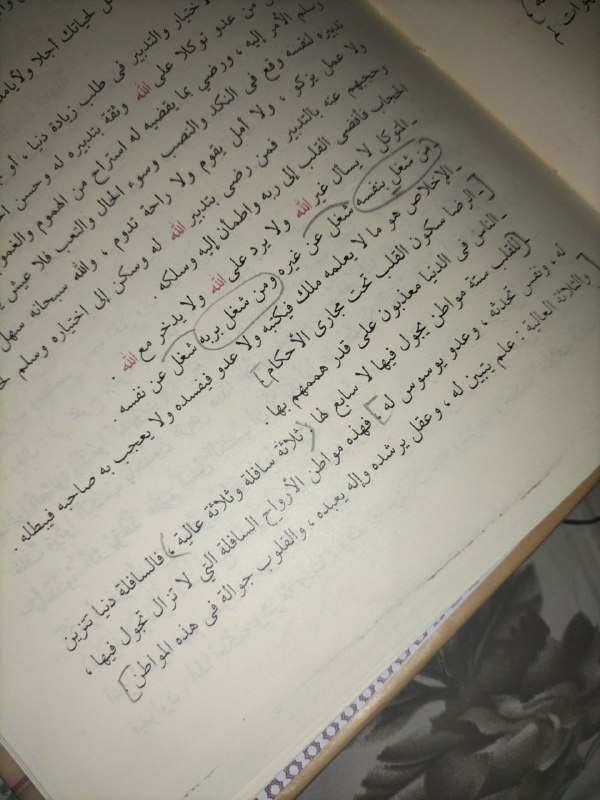 لحياتك أجلا
والتدبير في طلب زيادة دنيا ، أو
من عدو توكلا على الله وثقة بتدبيره له وحسن
وسلم الأمر إليه ، ورضي بما يقضيه له استراح من الهموم والغموم
تدبيره لنفسه وقع في النكد والنصب وسوء الحال والتعب فلا عيش
ولا عمل يزكو ، ولا أمل يقوم ولا راحة تدوم ، والله سبحانه سهل
وحجبهم عنه بالتدبير فمن رضى بتدبير الله له وسكن إلى اختياره وسلم
الحجاب وأفضى القلب إلى ربه واطمأن إليه وسلكه .
- المتوكل لا يسأل غير الله ولا يرد على الله ولا يدخر مع الله .
- من شغل بنفسه شغل عن غيره ومن شغل بربه شغل عن نفسه .
- الإخلاص هو ما لا يعلمه ملك فيكتبه ولا عدو فيفسده ولا يعجب به صاحبه فيبطله .
- الرضا سكون القلب تحت مجارى الأحكام
- الناس في الدنيا معذبون على قدر هممهم بها .
للقلب ستة مواطن يجول فيها لا سابع لها : ثلاثة سافلة وثلاثة عالية ، فالسافلة دنيا تتزين
له ، ونفس تحدثه ، وعدو يوسوس له ، فهذه مواطن الأرواح السافلة التي لا تزال تجول فيها ،
والثلاثة العالية : علم يتبين له ، وعقل يرشده وإله يعبده ، والقلوب جوالة في هذه المواطن